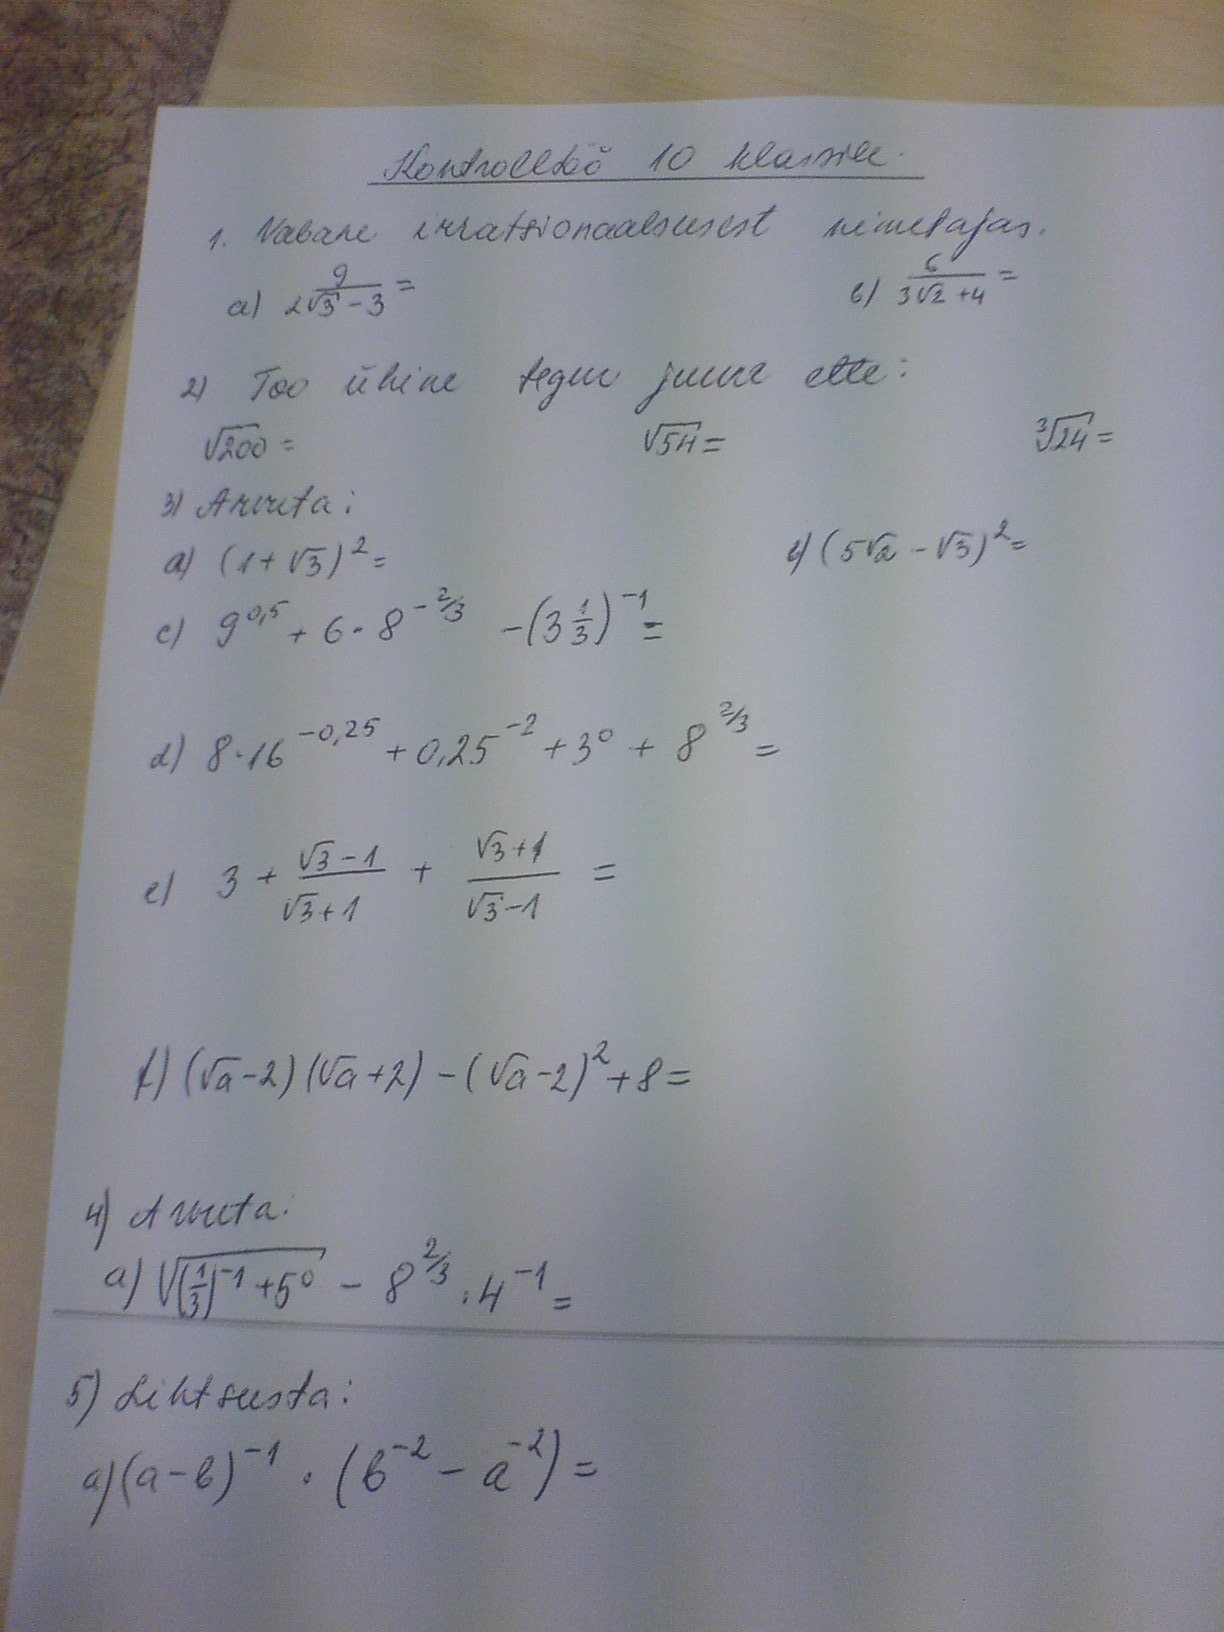 Kontrolltöö 10 klassile.
1. Vabane irratsionaalsusest nimetajas.
a) 9/(2√3 - 3) = в) 6/(3√2 + 4) =
2) Too ühine tegur juure ette:
√200 = √54 = ³√24 =
3) Arvuta:
a) (1 + √3)² = в) (5√2 - √3)² =
c) 9^0,5 + 6 · 8^(-2/3) - (3 1/3)^-1 =
d) 8 · 16^-0,25 + 0,25^-2 + 3^0 + 8^(2/3) =
e) 3 + (√3 - 1)/(√3 + 1) + (√3 + 1)/(√3 - 1) =
f) (√a - 2)(√a + 2) - (√a - 2)² + 8 =
4) Arvuta:
a) √((1/3)^-1 + 5^0) - 8^(2/3) · 4^-1 =
5) Lihtsusta:
a) (a - в)^-1 · (в^-2 - a^-2) =